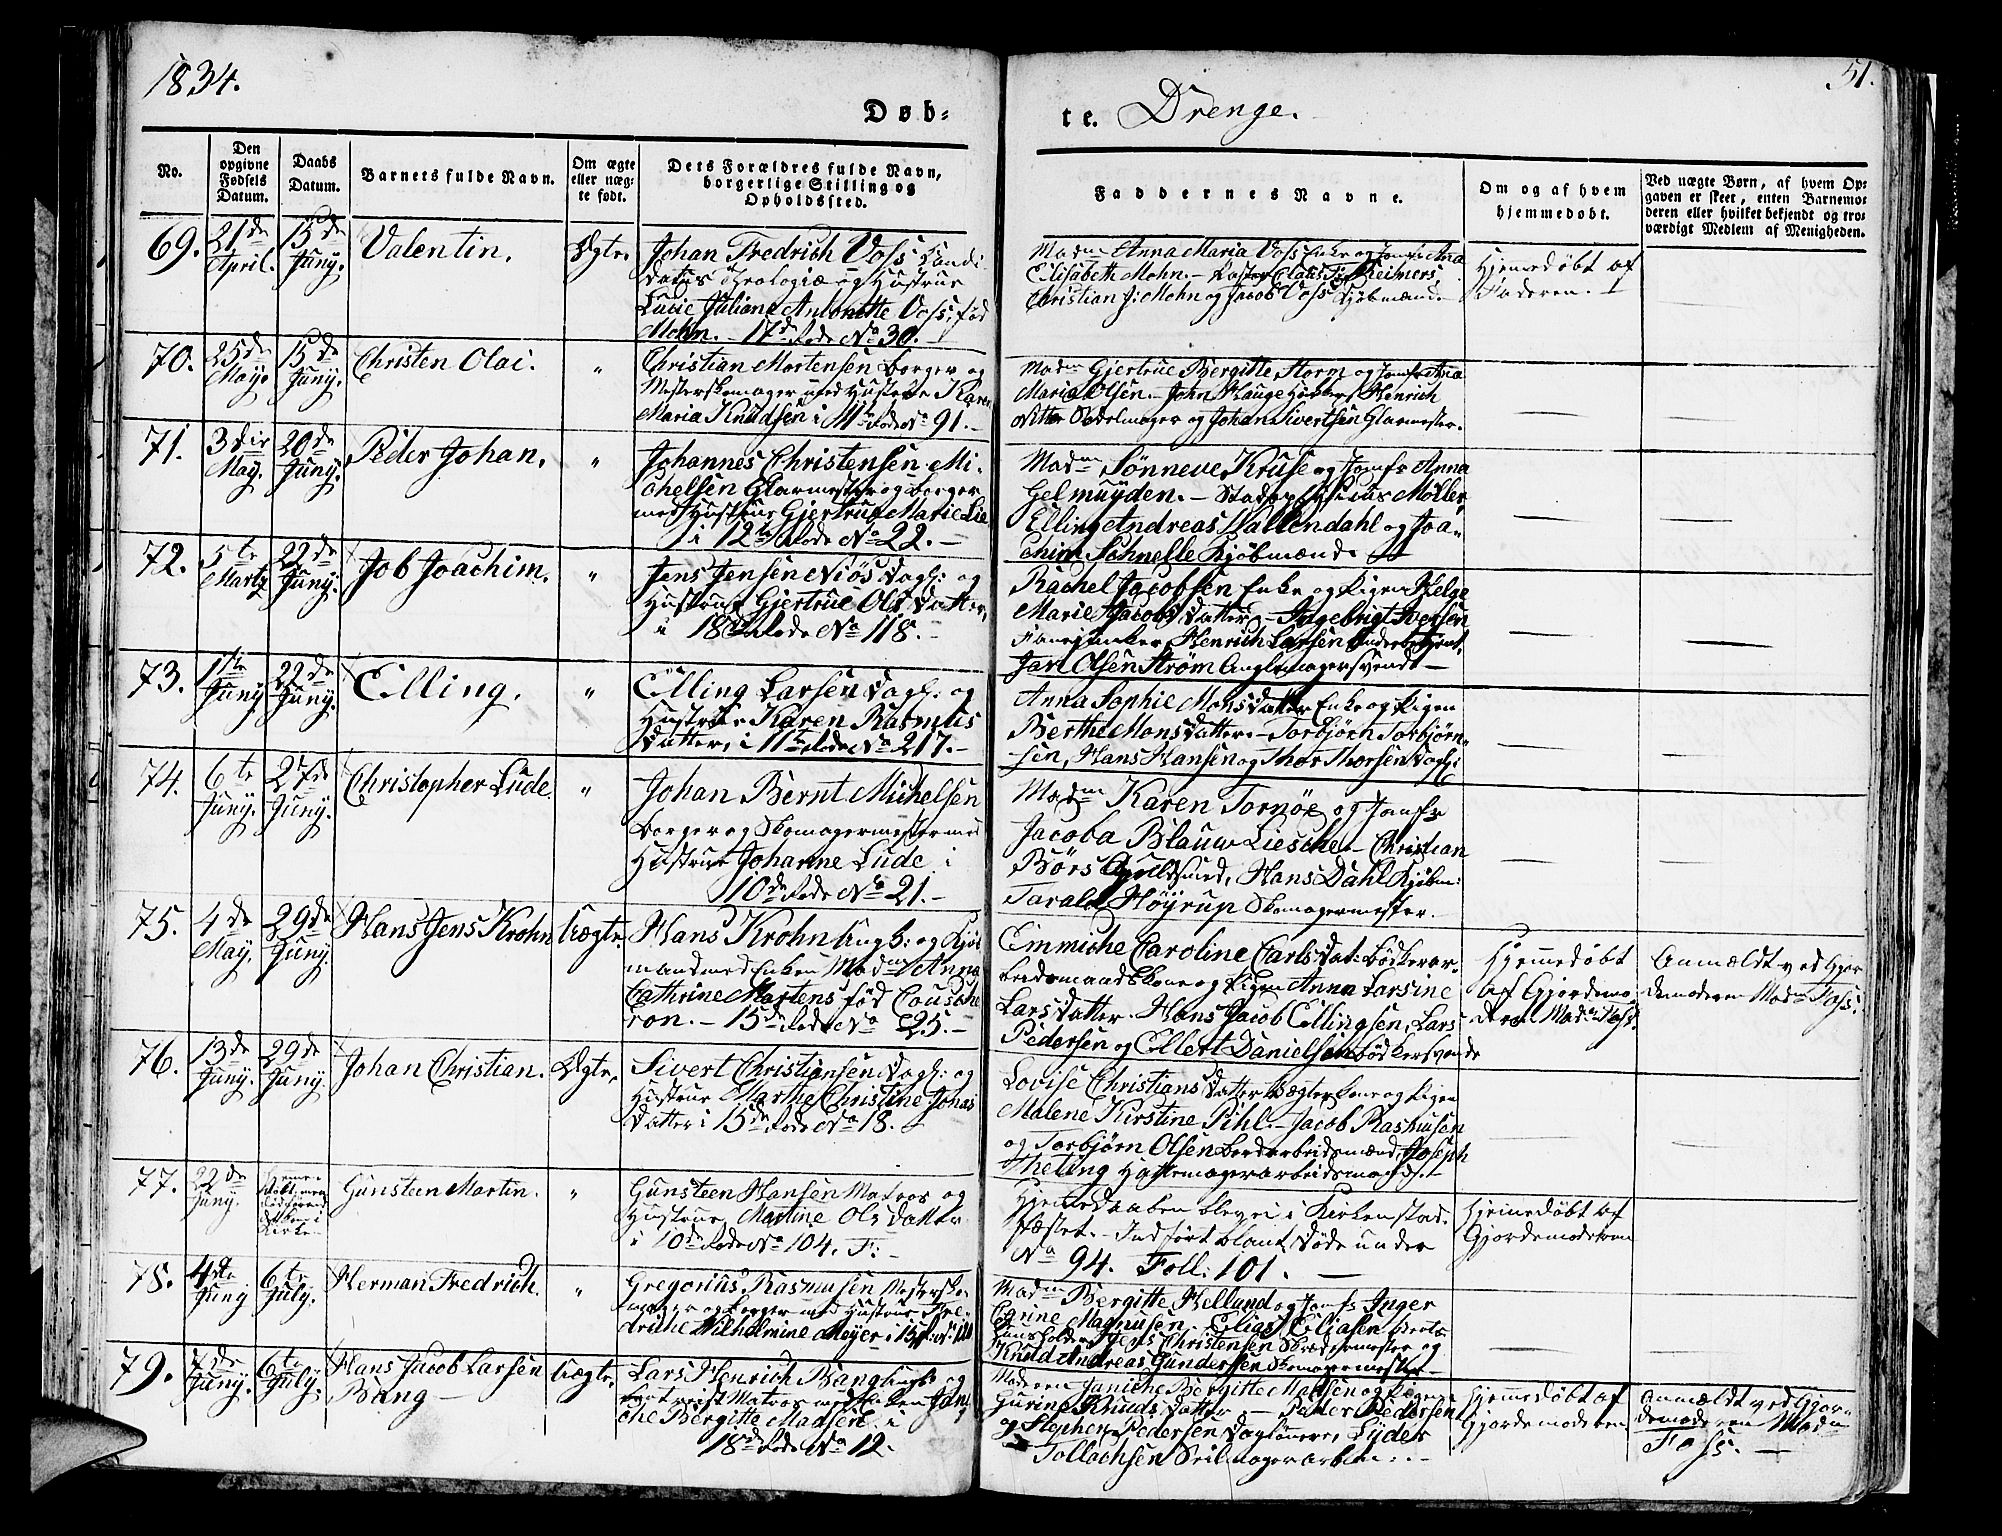 1834.
51.
Døb-
te. Drenge.
No.
Den opgivne Fødsels Datum.
Daabs Datum.
Barnets fulde Navn.
Om ægte eller uægte født.
Dets Forældres fulde Navn, borgerlige Stilling og Opholdssted.
Faddernes Navne.
Om og af hvem hjemmedøbt.
Ved uægte Børn, af hvem Opgaven er skeet, enten Barnemoderen eller hvilket bekjendt og troværdigt Medlem af Menigheden.
69. 21de April. 15de Juny. Valentin. Ægte.
Johan Fredrich Voss Kandi-
datus Theologiæ og Hustrue
Lucie Juliane Antonette Voss, fød
Mohn. - 17de Rode No 30.
Madme Anna Maria Voss Enke og Jomfr Ana
Elisabeth Mohn. - Claus Reimers
Christian J: Mohn og Jacob Voss Kjøbmænd
Hjemedøbt af
Faderen.
70. 25de May. 15de Juny. Christen Olai. "
Christian Mortensen Borger og
Mesterskomager med Hustrue Karen
Maria Knudsen i 11te Rode No 91.
Madme Gjertrue Bergitte Storm og Jomfr Ana
Maria Olsen. - John Hauge Høker, Henrich
Ditter Sadelmager og Johan Sivertsen Glarmester.
71. 3die May. 20de Juny. Peder Johan. "
Johannes Christensen Mi-
chelsen Glarmester og Borger
med Hustrue Gjertrue Marie Lie
i 12te Rode No 22.
Madme Sønneve Kruse og Jomfr Anna
Gelmuyden. - Møller,
Elling Andreas Wallendahl og Joa-
chim Schnelle Kjøbmænd
72. 5te Martz 22de Juny. Job Joachim. "
Jens Jensen Niøs Dagl: og
Hustrue Gjertrue Ols Datter,
i 18de Rode No 118.
Rachel Jacobsen Enke og Pigen Helge
Marie Jacobs Datter - Ingebrigt Iversen
Henrich Larsen
Jan Olsen Strøm Anglemagersvend
73. 1te Juny 22de Juny. Elling. "
Elling Larsen Dagl: og
Hustrue Karen Rasmus
Datter, i 11te Rode No 217.
Anna Sophie Mons Datter Enke og Pigen
Berthe Mons Datter. - Torbjørn Torbjørn-
sen, Hans Hansen og Thor Thorsen Dagl:
74. 6te Juny. 27de Juny. Christopher Lude. "
Johan Bernt Michelsen
Borger og Skomagermester med
Hustrue Johanne Lude i
10de Rode No 21.
Madme Karen Tornøe og Jomfr
Jacoba Blauw Liesche. - Christian
Børs Guldsmed, Hans Dahl Kjøbm:
Tarald Høyrup Skomagermester.
75. 4de May. 29de Juny. Hans Jens Krohn Uægte.
Hans Krohn Ungk: og Kjøb
mand med Enken Madme Anna
Cathrine Martens fød Cousche
ron. - 15de Rode No 25.
Emmiche Caroline Carlsdat: Bødkerar-
beidsmands Kone og Pigen Anna Larsine
Lars Datter. Hans Jacob Ellingsen, Lars
Pedersen og Ellert Danielsen Bødkersvende
Hjemedøbt
af Gjordemo
deren Madm Foss.
Anmældt ved Gjor
demoderen Madm Foss.
76. 13de Juny. 29de Juny. Johan Christian. Ægte.
Sivert Christiansen Dagl: og
Hustrue Marthe Christine Jonas
Datter i 15de Rode No 18.
Lovise Christians Datter Vægter Kone og Pigen
Malene Kirstine Pihl. - Jacob Rasmusen
og Torbjørn Olsen Bordarbeidsmænd, Joseph
Theting Hattemagerarbeidsmand.
77. 22de Juny. Gunsteen Martin. "
Gunsteen Hansen Matros og
Hustrue Martine Ols Datter
i 10de Rode No 104. F:
Hjemedaaben blev ei i Kirken stad-
fæstet. - Indført blant Døde under
No 94. Foll: 101.
Hjemedøbt af
Gjordemoderen
78. 4de Juny 6te July. Herman Fredrich. "
Gregorius Rasmusen Mestersko-
mager og Borger med Hustrue Fre-
driche Wilhelmine Meyer i 15de
Madme Bergitte Hellund og Jomfr Inger
Carine Magnusen. Elias Eliasen
Jens Christensen Skrædermester og
Knud Andreas Gundersen Skomagermester
79. 7de Juny. 6te July. Hans Jacob Larsen Bang Uægte.
Lars Henrich Bang Ungk: og
Matros med Enken Jan-
che Bergitte Madsen i
18de Rode No 12.
Moderen Janiche Bergitte Madsen og Pigen
Gurine Knuds Datter - Peder Pedersen
og Stephen Pedersen Daglønnere, Lyder
Tollachsen Seilmagerarbeid
Hjemmedøbt af
Gjordemoderen
Anmældt ved Gjor-
demoderen Madm
Foss.